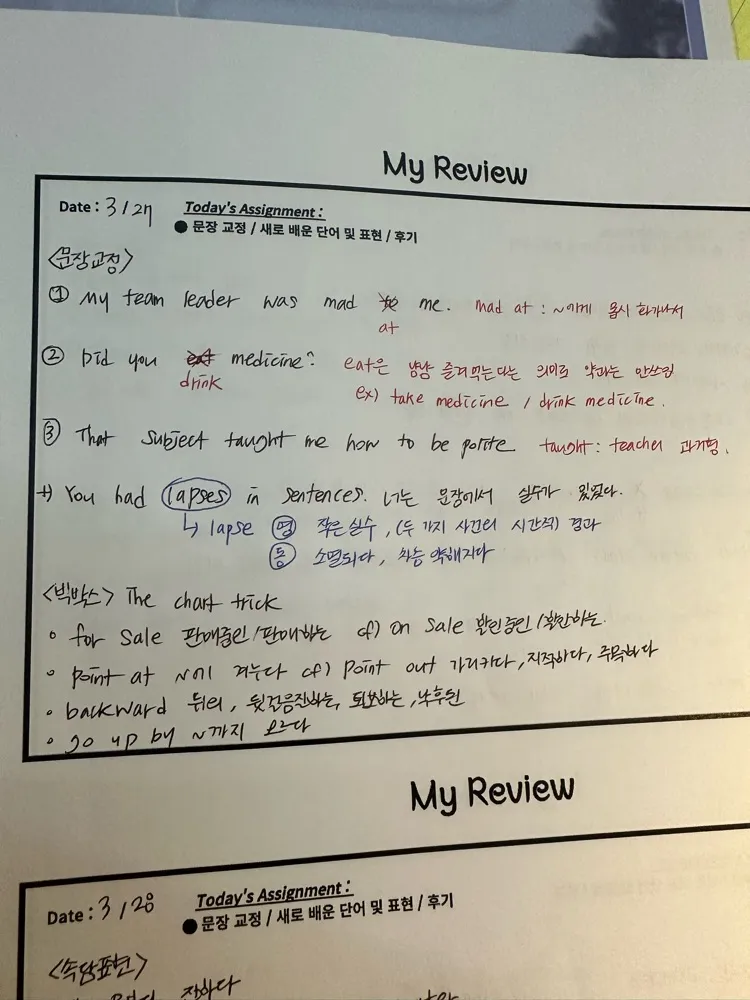 My Review
Date : 3/27 Today's Assignment :
● 문장 교정 / 새로 배운 단어 및 표현 / 후기
<문장교정>
① My team leader was mad to me. mad at : ~에게 몹시 화가나서
at
② Did you eat medicine? eat은 냠냠 즐겨먹는다는 의미로 약과는 안쓰임
drink ex) take medicine / drink medicine.
③ That subject taught me how to be polite taught : teacher 과거형.
+) You had lapses in sentences. 너는 문장에서 실수가 있었다.
↳ lapse 명 작은실수, (두 가지 사건의 시간적) 경과
동 소멸되다,
<빅박스> The chart trick
• for sale 판매중인/판매하는 cf) on sale 할인중인/할인하는.
• point at ~에 겨누다 cf) point out 가리키다, 지적하다, 주목하다
• backward 뒤의, 뒷걸음진하는, 퇴보하는, 낙후된
• go up by ~까지 오르다
My Review
Date : 3/28 Today's Assignment :
● 문장 교정 / 새로 배운 단어 및 표현 / 후기
<속담표현>